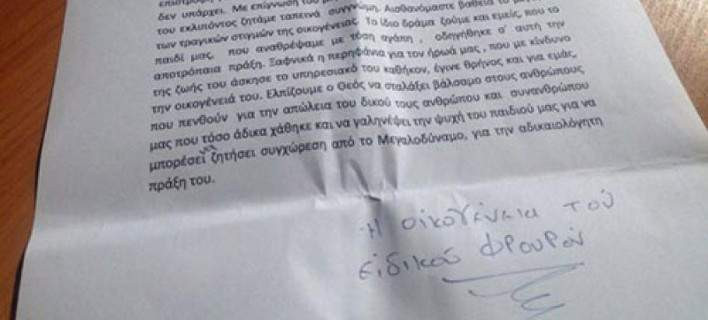 δεν υπάρχει. Με επίγνωση του
του εκλιπόντος ζητάμε ταπεινά συγγνώμη. Αισθανόμαστε βαθειά το
των τραγικών στιγμών της οικογένειας. Το ίδιο δράμα ζούμε και εμείς, που το
παιδί μας, που αναθρέψαμε με τόση αγάπη, οδηγήθηκε σ' αυτή την
αποτρόπαια πράξη. Ξαφνικά η περηφάνια για τον ήρωά μας, που με κίνδυνο
της ζωής του άσκησε το υπηρεσιακό του καθήκον, έγινε θρήνος και για εμάς,
την οικογένειά του. Ελπίζουμε ο Θεός να σταλάξει βάλσαμο στους ανθρώπους
που πενθούν για την απώλεια του δικού τους ανθρώπου και συνανθρώπου
μας που τόσο άδικα χάθηκε και να γαληνέψει την ψυχή του παιδιού μας για να
μπορέσει να ζητήσει συγχώρεση από το Μεγαλοδύναμο, για την αδικαιολόγητη
πράξη του.
Η οικογένεια τού
ειδικού φρουρού